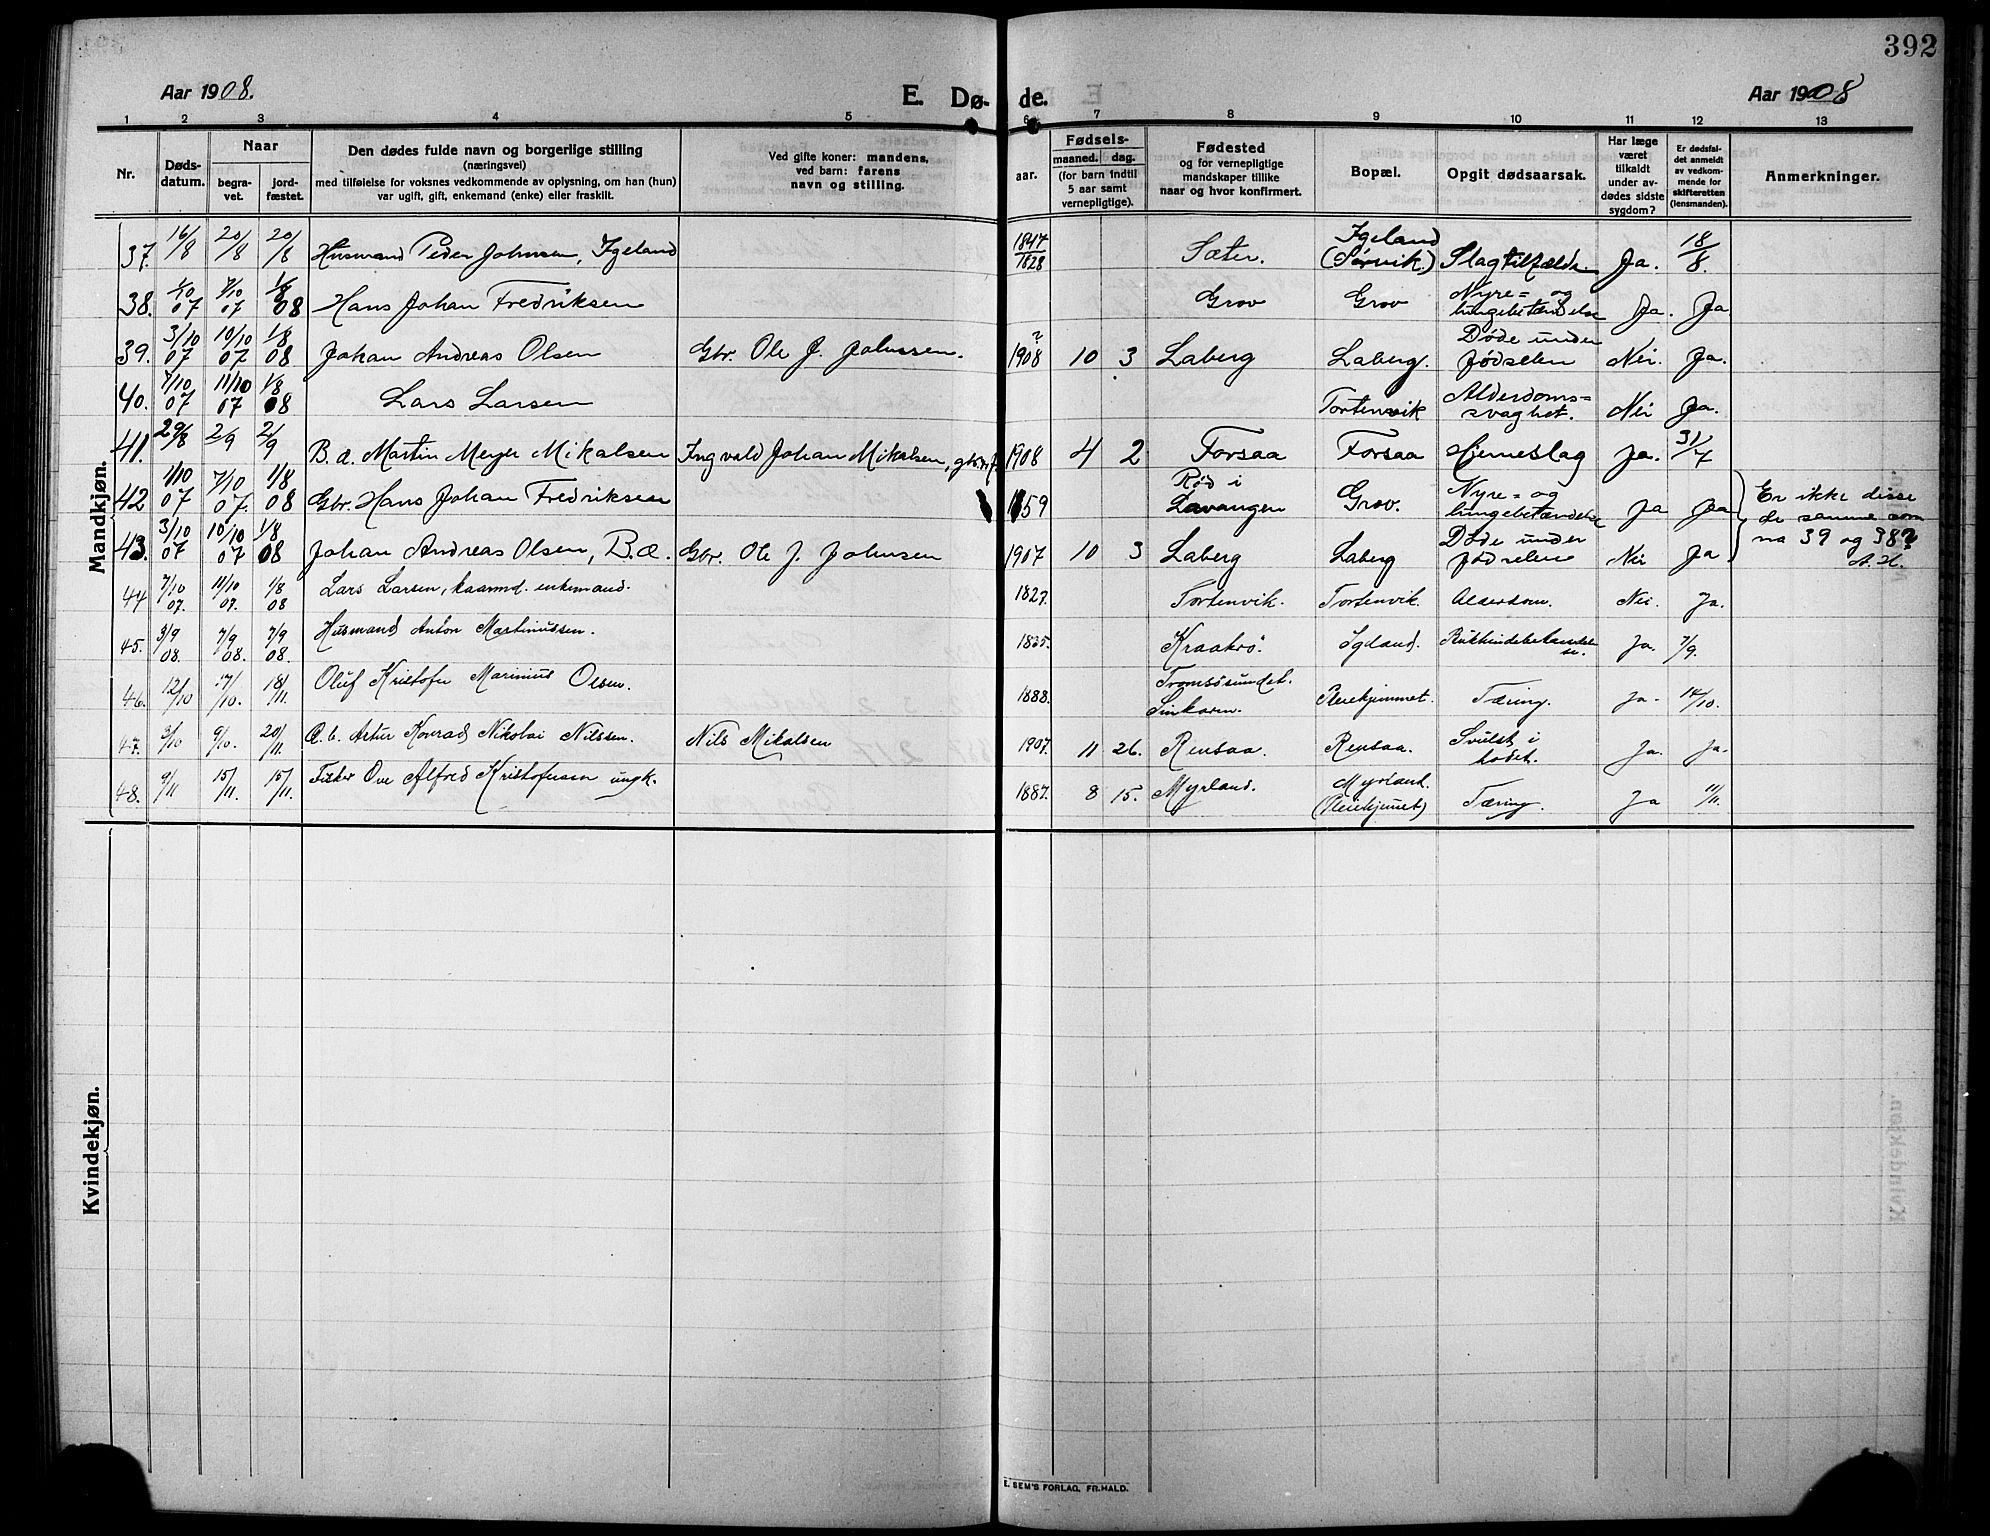 392
Aar 1908.
E. Dø- de.
Aar 1908
1 2 3 4 5 6 7 8 9 10 11 12 13
Nr.
Døds-
datum.
Naar
begra-
vet.
jord-
fæstet.
Den dødes fulde navn og borgerlige stilling
(næringsvei)
med tilføielse for voksnes vedkommende av oplysning, om han (hun)
var ugift, gift, enkemand (enke) eller fraskilt.
Ved gifte koner: mandens,
ved barn: farens
navn og stilling.
Fødsels-
aar.
maaned. dag.
(for barn indtil
5 aar samt
vernepligtige).
Fødested
og for vernepligtige
mandskaper tillike
naar og hvor konfirmert.
Bopæl.
Opgit dødsaarsak.
Har læge
været
tilkaldt
under av-
dødes sidste
sygdom?
Er dødsfal-
det anmeldt
av vedkom-
mende for
skifteretten
(lensmanden).
Anmerkninger.
Mandkjøn.
37. 16/8 20/8 20/8 Husmand Peder Johnsen, Igeland 1847/1828 Sæter. Igeland (Sørvik.) Slagtilfælde Ja. 18/8.
38. 1/10 07 7/10 07 1/8 08 Hans Johan Fredriksen Grov Grov Nyre= og lungebetændelse Ja. Ja
39. 3/10 07 10/10 07 1/8 08 Johan Andreas Olsen Gbr. Ole J. Johnsen. ? 1908 10 3 Laberg Laberg. Døde under fødselen Nei. Ja.
40. 7/10 07 11/10 07 1/8 08 Lars Larsen Tortenvik Alderdoms= svaghet. Nei Ja.
41. 29/8 2/9 2/9 B. æ. Martin Meyer Mikalsen Ingvald Johan Mikalsen, 1908 4 2 Forsaa Forsaa Hjerneslag Ja. 31/7
42 1/10 07 7/10 07. 1/8 08 Gbr. Hans Johan Fredriksen 59 Rød i Lavangen Grov. Nyre= og lungebetændelse Ja Ja
43. 3/10 07 10/10 07 1/8 08 Johan Andreas Olsen, B. æ. Gbr. Ole J. Johnsen 1907 10 3 Laberg Laberg Døde under fødselen Nei Ja
Er ikke disse
de samme som
no 39 og 38?
A. H.
44 7/10 07. 11/10 07. 1/8 08 Lars Larsen, kaarmd. enkemand. 1827. Tortenvik. Tortenvik. Alderdom. Nei. Ja.
45. 3/9 08. 7/9 08. 7/9 08. Husmand Anton Martinussen. 1835. Kraakrø. Igeland. Ja. 7/9.
46. 12/10 17/10. 18/11. Oluf Kristofer Marinius Olsen. 1888. Tromsøsundet. Pleiehjemmet. Tæring. Ja. 14/10.
47. 3/10 9/10. 20/11. Æ. b. Artur Konrad Nikolai Nilssen. Nils Mikalsen 1907. 11 26. Rensaa. Rensaa. Svulst i hodet. Ja. Ja.
48. 9/11 15/11. 15/11. Fisker Ove Alfred Kristofersen ungk. 1887. 8 15. Myrland. Myrland. (Pleiehjemmet) Tæring. Ja 11/11.
Kvindekjøn.
E. SEM'S FORLAG, FR.HALD.